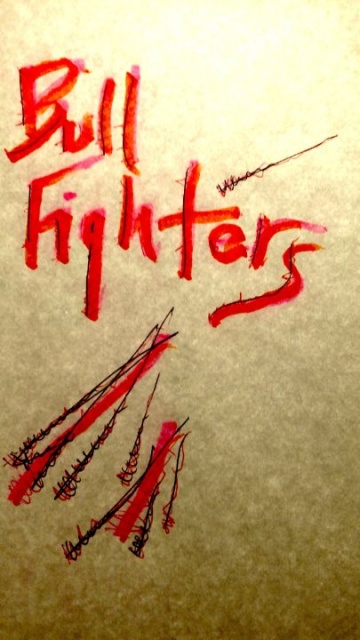 Bull
Fighters